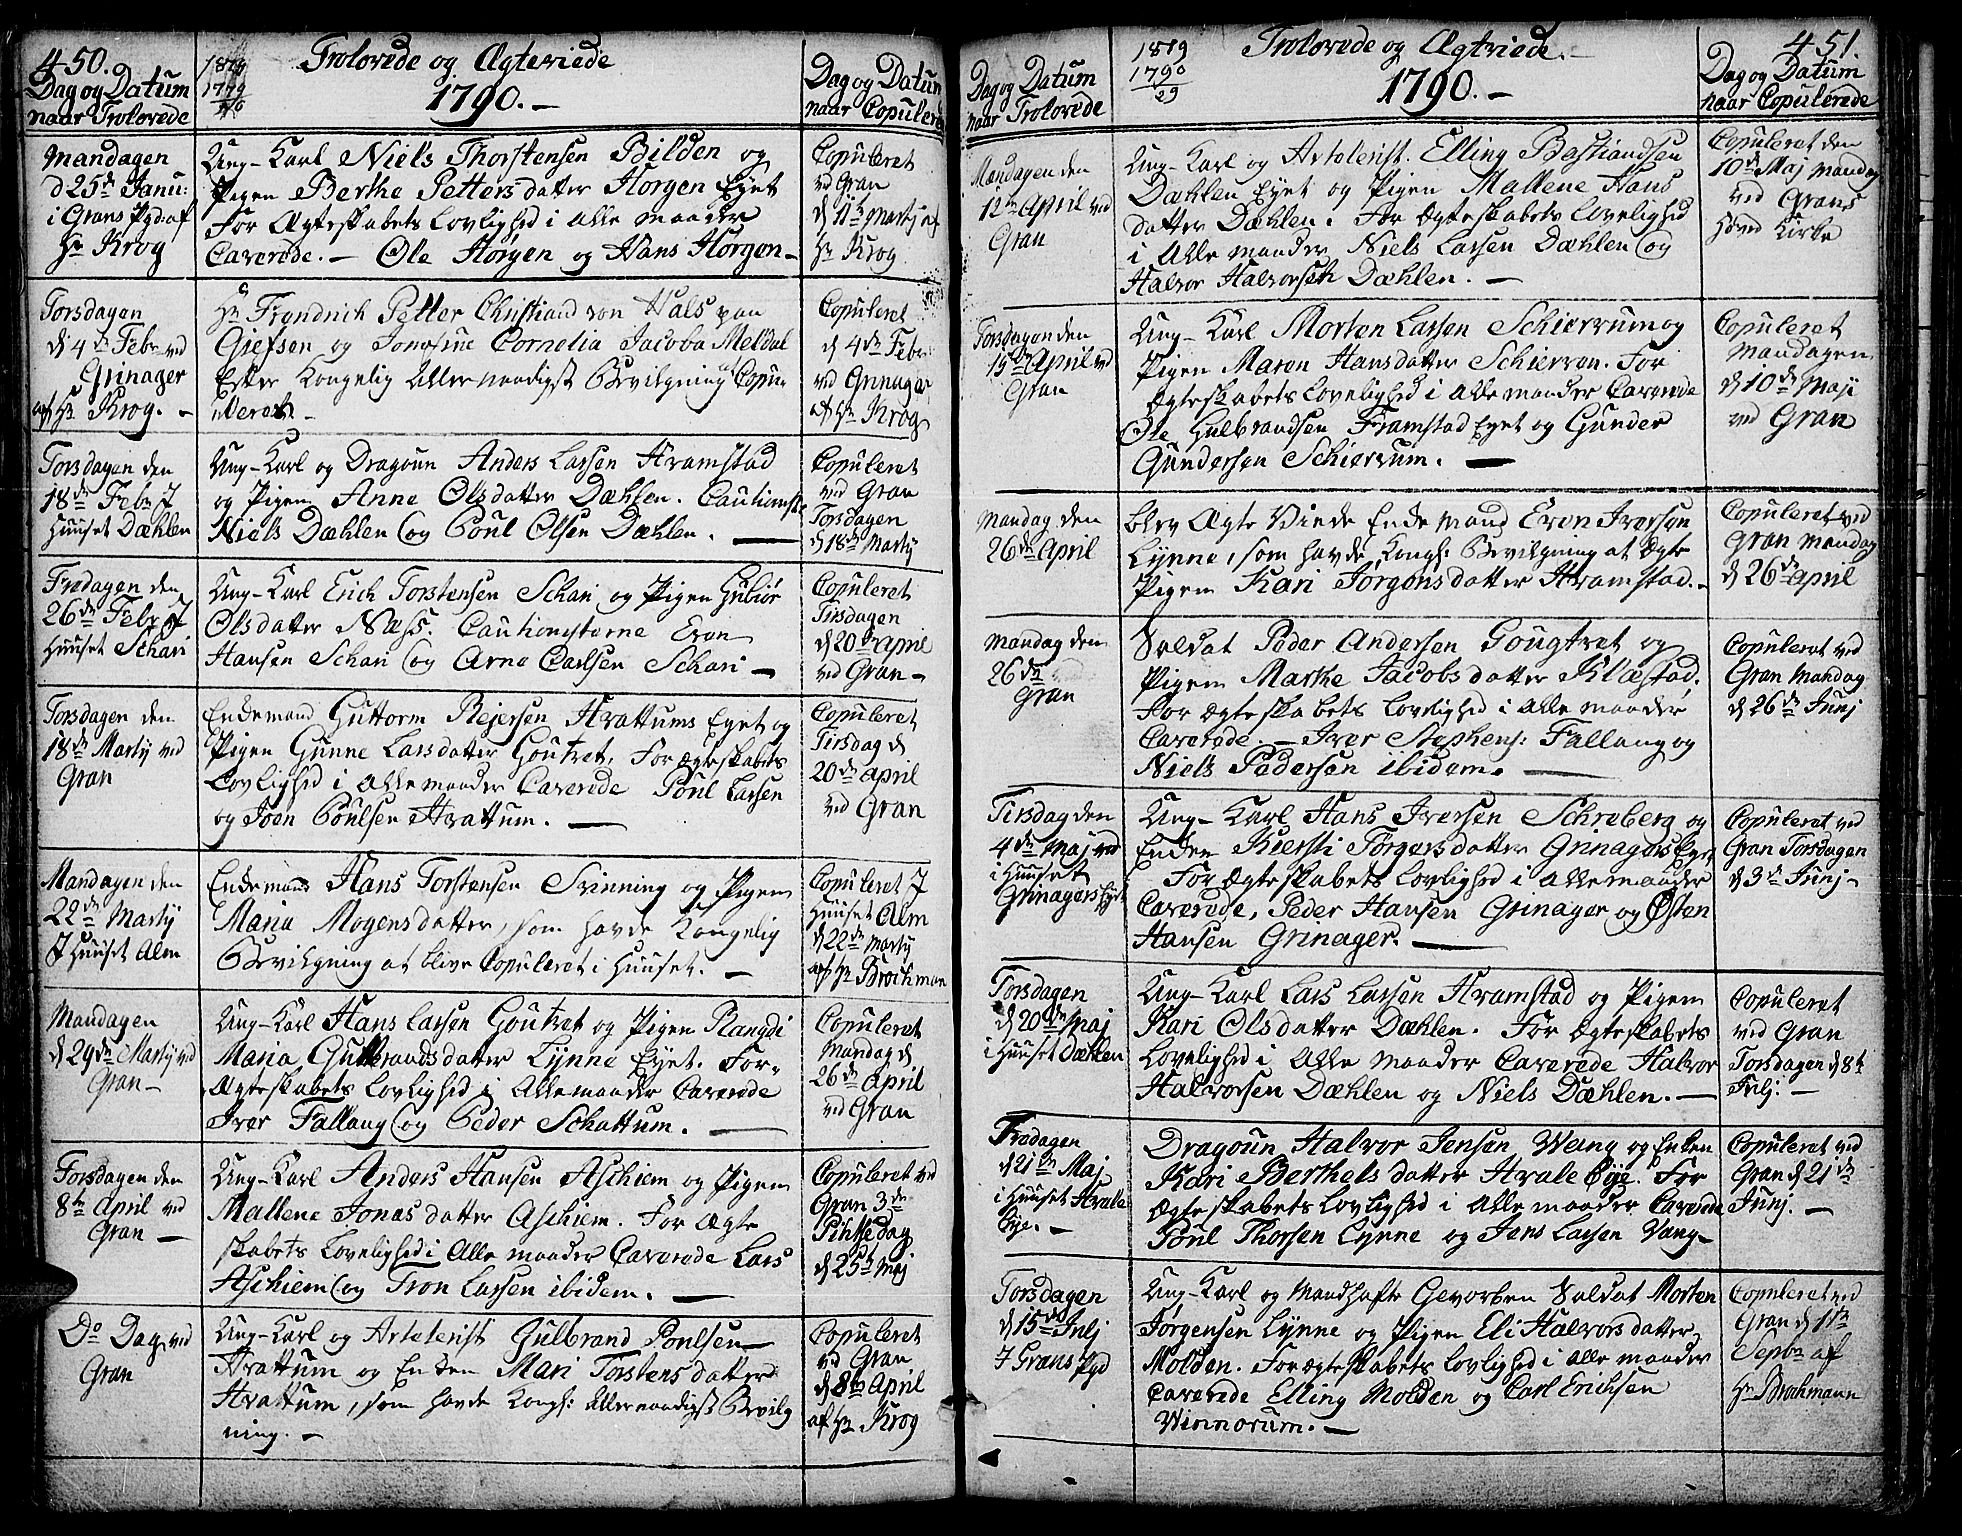 450.
1819
1779
Trolovede og Ægteviede
1790.-
Dag og Datum
naar Trolovede
Dag og Datum
naar Copulerede
Mandagen
d 25de Janu:
i Grans Pgd: af
Hr Krog
Ung-Karl Niels Thorstensen Bilden og
Pigen Berthe Pettersdatter Horgen Eyet
For Ægteskabets Lovlighed i Alle maader
Caverede.- Ole Horgen og Hans Horgen-
Copuleret
ved Gran
d 11te Martj af
Hr Krog
Torsdagen
d 4de Febr ved
Grinager
af Hr Krog.-
Hr Friedrich Petter Christiand von Hals paa
Giefsen og Jomfrue Cornelia Jacoba Meldal
Efter Kongelig Allernaadigst Bevilgning Copu-
leret.-
Copuleret
d 4de Febr
ved Grinager
af Hr Krog
Torsdagen den
18de Febr J
Huuset Dæhlen
Ung-Karl og Dragoun Anders Larsen Framstad
og Pigen Anne Olsdatter Dæhlen. Cautionste
Niels Dæhlen og Poul Olsen Dæhlen.
Copuleret
ved Gran
Torsdagen
d 18de Martj
Fredagen den
26de Febr J
Huuset Schari
Ung-Karl Erich Torstensen Schari og Pigen Gubiør
Olsdatter Næss. Cautionsterne Even
Hansen Schari og Arne Carlsen Schari-
Copuleret
Tirsdagen
d 20de April
ved Gran-
Torsdagen den
18de Martj ved
Gran
Enkemand Guttorm Rejersen Hvattums Eyet og
Pigen Gunne Larsdatter Goutvet, For Ægteskabets
Lovlighed i Alle maader Caverede Poul Larsen
og Joen Poulsen Hvattum.
Copuleret
Tirsdag d
20de April
ved Gran
Mandagen den
22de Martj
J Huuset Alm
Enkemand Hans Torstensen Svinning og Pigen
Maria Mogensdatter, som havde Kongelig
Bevilgning at blive Copuleret i Huuset.-
Copuleret J
Huuset Alm
d 22de Martj
af Hr Brochman
Mandagen
d 29de Martj ved
Gran-
Ung-Karl Hans Larsen Goutvet og Pigen Rangdi
Maria Gulbrandsdatter Lynne Eyet. For
Ægteskabets Lovlighed i Alle maader Caverede
Iver Fallang og Peder Schattum.
Copuleret
Mandag d
26de April
ved Gran
Torsdagen den
8te April ved
Gran-
Ung-Karl Anders Hansen Aschiem og Pigen
Mallene Jonasdatter Aschiem. For Ægte
skabets Lovelighed i Alle maader Caverede Lars
Aschiem og Tron Larsen ibidem.
Copuleret ved
Gran 3de
Pintsedag
d 25te Maj
Do Dag ved
Gran
Ung-Karl og Artolerist Gulbrand Poulsen
Hvattum og Enken Mari Torstensdatter
Hvattum, som havde Kongl: Allernaadigst Bevilg
ning.-
Copuleret
ved Gran
d 8te April
af Hr Krog
451.
1819
1790
29
Trolovede og Ægtviede.-
1790.-
Dag og Datum
naar Trolovede
Dag og Datum
naar Copulerede
Mandagen den
12te April ved
Gran
Ung-Karl og Artolerist. Elling Bastiandsen
Dæhlen Eyet og Pigen Mallene Hans
datter Dæhlen. For Ægteskabets Lovelighed
i Alle maader Niels Larsen Dæhlen og
Halvor Halvorsen Dæhlen.-
Copuleret den
10de Maj Mandag
ved Grans
Hoved Kirke
Torsdagen den
15de April ved
Gran
Ung-Karl Morten Larsen Schiervum og
Pigen Maren Hansdatter Schierven. For
Ægteskabets Lovelighed i Alle maader Caverede
Ole Gulbrandsen Framstad Eyet og Gunder
Gundersen Schiervum.
Copuleret
Mandagen
d 10de Maji
ved Gran
Mandag den
26de April
blev Ægte Viede Enke Mand Even Iversen
Lynne, som havde Kongl: Bevilgning at Ægte
Pigen Kari Jørgensdatter Framstad.-
Copuleret ved
Gran Mandag
d 26de April
Mandag den
26de
Gran
Soldat Peder Andersen Gougtvet og
Pigen Marthe Jacobsdatter Klæstad.
For Ægteskabets Lovlighed i Alle maader
Caverede.- Iver Stephens: Fallang og
Niels Pedersen ibidem.
Copuleret ved
Gran Mandag
d 26de Junj
Tirsdag den
4de Maj ved
i Huuset
Grinagers Eyet
Ung-Karl Hans Iversen Schreberg og
Enken Kiersti Torgersdatter Grinagers Eyet
For Ægteskabets Lovlighed i Alle maader
Caverede, Peder Hansen Grinager og Østen
Hansen Grinager.
Copuleret ved
Gran Torsdagen
d 3de Junj-
Torsdagen
d 20de Maj
i Huuset Dæhlen
Ung-Karl Lars Larsen Framstad og Pigen
Kari Olsdatter Dæhlen. For Ægteskabets
Lovelighed i Alle maader Caverede Halvor
Halvorsen Dæhlen og Niels Dæhlen.-
Copuleret
ved Gran
Torsdagen d 8te
Julj.-
Fredagen
d 21de Maj
i Huuset Hvale
Eye.-
Dragoun Halvor Jensen Wang og Enken
Kari Berthelsdatter Hvale Eye. For
Ægteskabets Lovlighed i Alle maader Caverede
Poul Thorsen Lynne og Jens Larsen Vang-
Copuleret ved
Gran d 21de
Junj.-
Torsdagen
d 15de Julj
J Grans Pgd
Ung-Karl og Mandhafte Gevorben Soldat Morten
Jørgensen Lynne og Pigen Eli Halvorsdatter
Molden. For Ægteskabets Lovlighed i Alle maader
Caverede Elling Molden og Carl Erichsen
Winnorum.-
Copuleret ved
Gran d 1te
Sepbr af
Hr Brochmann